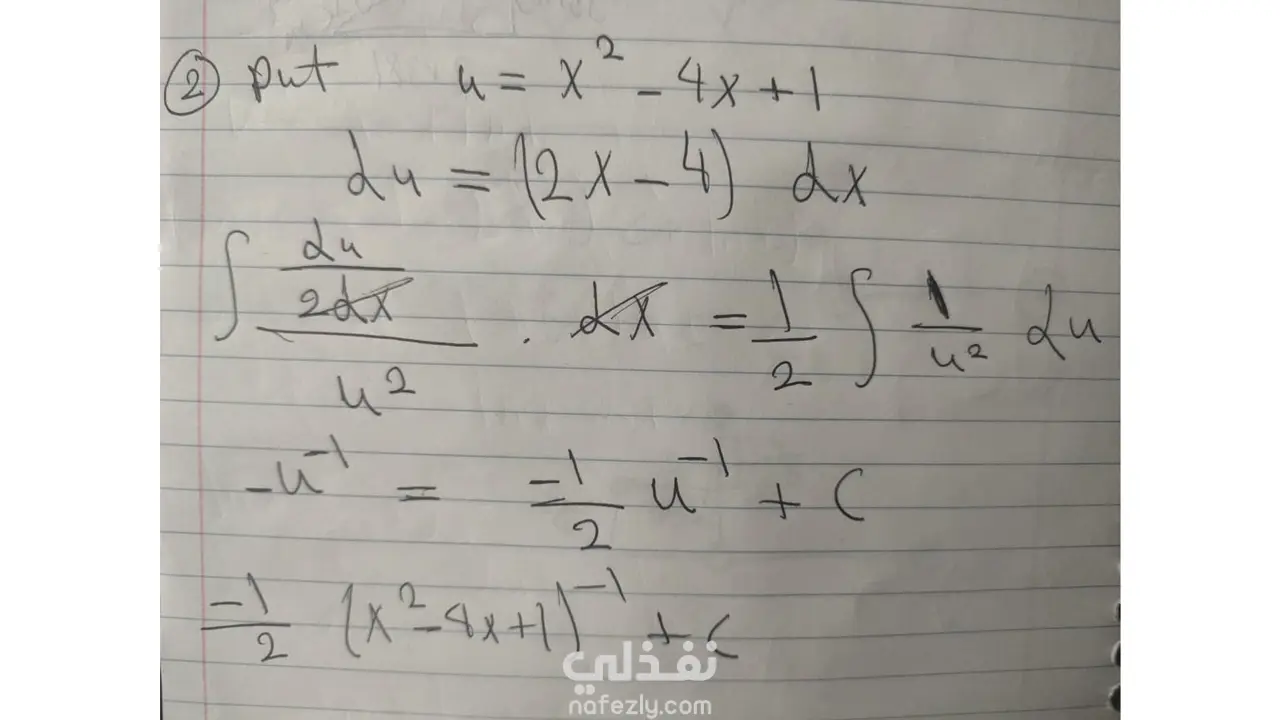 ② put u = x² - 4x + 1
du = (2x - 4) dx
∫ (du / 2dx) / u² . dx = 1/2 ∫ 1/u² du
-u⁻¹ = -1/2 u⁻¹ + C
-1/2 (x² - 4x + 1)⁻¹ + C
نفذلي
nafezly.com